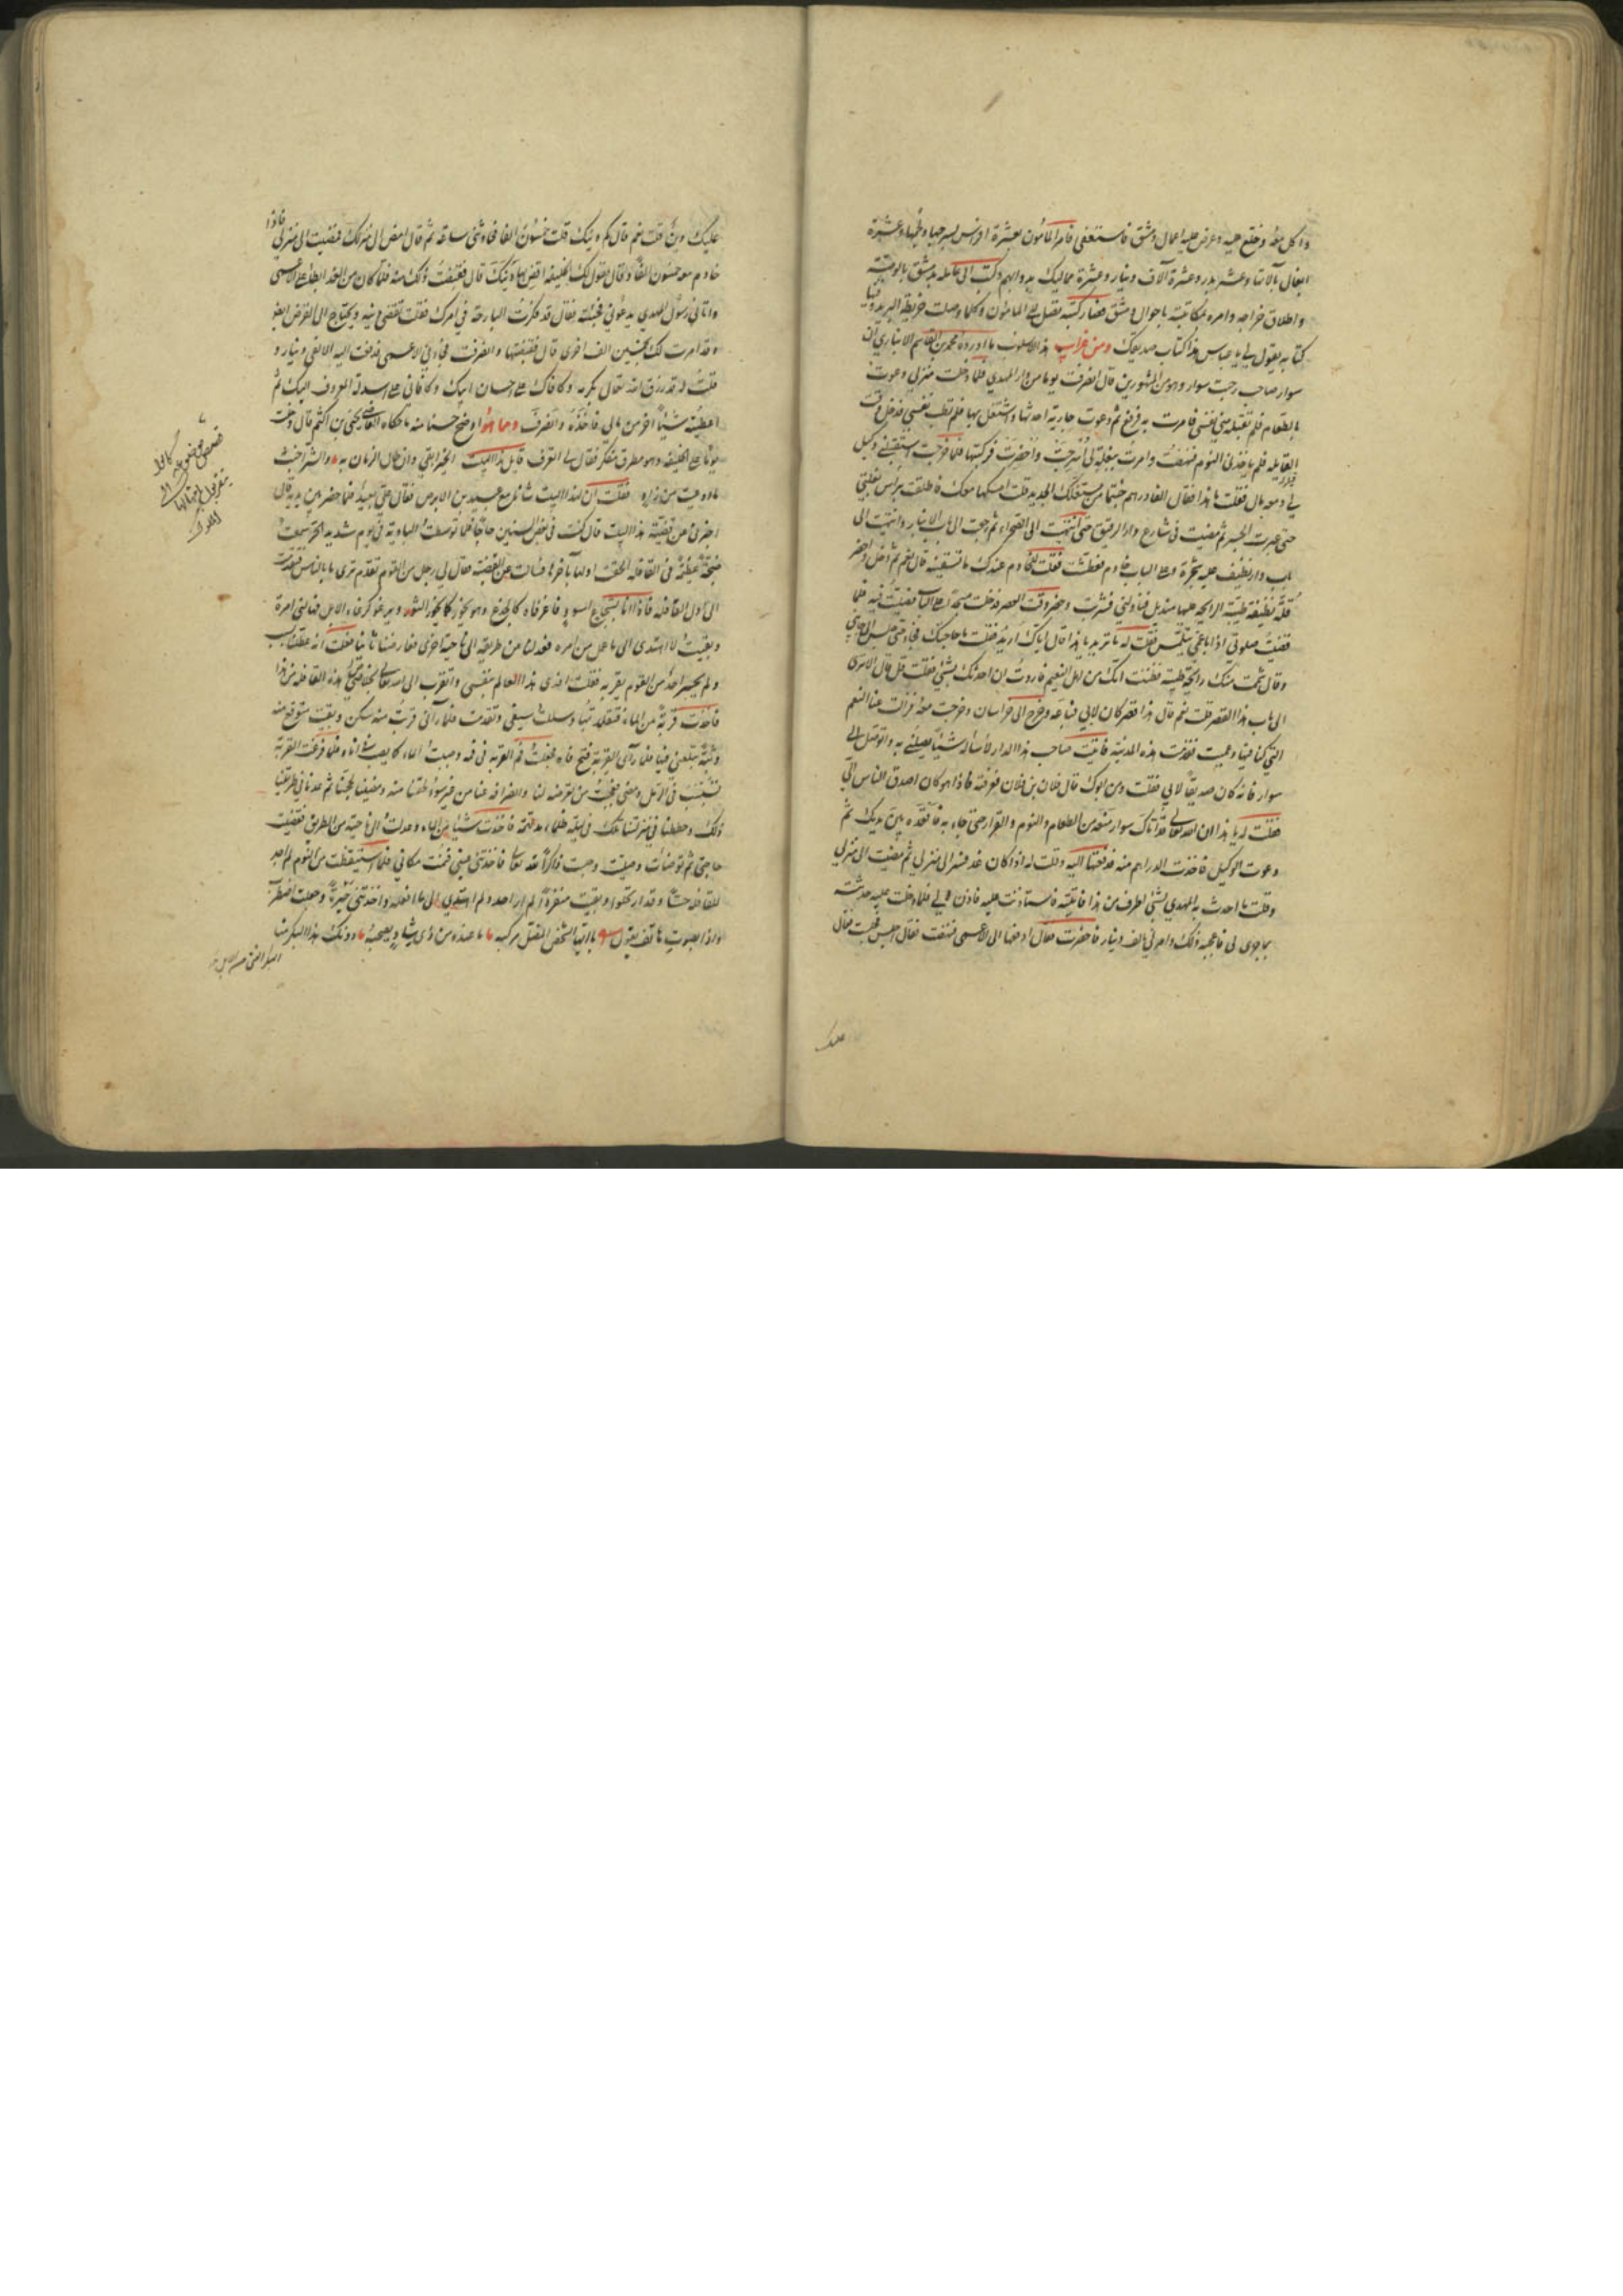 واكل معه وخلع عليه وعرض عليه اعمال دمشق فاستعفى فامر المأمون بعشرة افراس بسرجها ولجمها وعشرة
البغال بآلاتها وعشر بدر وعشرة آلاف دينار وعشرة مماليك بدوابهم وكتب الى عامله بدمشق بالوصية به
واطلاق خراجه وامره بمكاتبته باحوال دمشق فصار كتبه تصل الى المأمون وكلما وصلت خريطة البريد وفيها
كتابه يقول لي يا عباس هذا كتاب صديقك ومن غرائب هذا الاسلوب ما اورده محمد بن القاسم الانباري ان
سوار صاحب رحبة سوار وهو من المشهورين قال انصرفت يوما من دار المهدي فلما دخلت منزلي دعوت
بالطعام فلم تقبله نفسي فامرت به فرفع ثم دعوت جارية احدثها واشتغل بها فلم تطب نفسي فدخل وقت
القايله فلم ياخذني النوم فنهضت وامرت ببغلة لي فاسرجت واحضرت فركبتها فلما خرجت استقبلني وكيل
لي ومعه مال فقلت ما هذا فقال الفا درهم جبيتها من مستغلك الجديد قلت امسكها معك واتبعني فاطلقت رأس بغلتي
حتى عبرت الجسر ثم مضيت في شارع دار الرقيق حتى انتهيت الى الصحراء ثم رجعت الى باب الانبار وانتهيت الى
باب دار نظيف عليه شجرة وعلى الباب خادم فعطشت فقلت للخادم عندك ما تسقينيه قال نعم ثم دخل واحضر
قلة نظيفة طيبة الرايحة عليها منديل فناولني فشربت وحضر وقت العصر فدخلت مسجدا على الباب فصليت فيه فلما
قضيت صلوتي اذا باعمى يتلمس فقلت له ما تريد يا هذا قال اياك اريد فقلت ما حاجتك فجاء حتى جلس الى جانبي
وقال شممت منك رايحة طيبة فظننت انك من اهل النعيم فاردت ان احدثك بشئ فقلت قل قال الا ترى
الى باب هذا القصر قلت نعم قال هذا قصر كان لابي فباعه وخرج الى خراسان وخرجت معه فزالت عنا النعم
التي كنا فيها وعميت فقدمت هذه المدينة فاتيت صاحب هذا الدار لأسأله شيئا يصلني به واتوصل الى
سوار فانه كان صديقا لابي فقلت ومن ابوك قال فلان بن فلان فعرفته فاذا هو كان اصدق الناس الي
فقلت له يا هذا ان الله تعالى قد اتاك سوار منعه من الطعام والنوم والقرار حتى جاء به فأقعده بين يديك ثم
دعوت الوكيل فاخذت الدراهم منه فدفعتها اليه وقلت له اذا كان غد فسر الى منزلي ثم مضيت الى منزلي
وقلت ما احدث به المهدي بشئ اطرف من هذا فاتيته فاستاذنت عليه فاذن لي فلما دخلت عليه حدثته
بما جرى لي فاعجبه ذلك وامر لي بالف دينار فاحضرت فقال ادفعها الى الاعمى فنهضت فقال اجلس فجلست فقال
عليك
عليك دين قلت نعم قال كم دينك قلت خمسون الفا فحادثني ساعة ثم قال امض الى منزلك فمضيت الى منزلي فاذا
خادم معه خمسون الفا وقال يقول لك الخليفه اقض بها دينك قال فقبضت ذلك منه فلما كان من الغد ابطأ على الاعمى
واتاني رسول المهدي يدعوني فجئته فقال قد فكرت البارحة في امرك فقلت تقضي دينه ويحتاج الى القرض ايضا
وقد امرت لك بخمسين الف اخرى قال فقبضتها وانصرفت فجاءني الاعمى فدفعت اليه الالفي دينار و
قلت له قد رزق الله تعالى بكرمه وكافاك على احسان ابيك وكافاني على اسداء المعروف اليك ثم
اعطيته شيئا آخر من مالي فاخذه وانصرف وما هو اوضح حسنا منه ما حكاه القاضي يحيى بن اكثم قال دخلت
يوما على الخليفه وهو مطرق متفكر فقال لي اتعرف قايل هذا البيت الخير ابقى وان طال الزمان به والشر اخبث
ما اوعيت من زاد فقلت ان لهذا البيت شانا مع عبيد بن الابرص فقال علي بعبيد فلما حضر بين يديه قال
اخبرني عن قضية هذا البيت قال كنت في بعض السنين حاجا فلما توسطت البادية في يوم شديد الحر سمعت
ضجة عظيمة في القافله الحقت اولها بآخرها فسالت عن القصة فقال لي رجل من القوم تقدم ترى ما بالناس فتقدمت
الى اول القافله فاذا انا بشجاع اسود فاغر فاه كالجذع وهو يخور كما يخور الثور ويرغو كرغاء الابل فهالني امره
وبقيت لا اهتدى الى ما عمل من امره فعدلنا عن طريقه الى ناحية اخرى فعارضنا ثانيا فعلمت انه لسبب
ولم يجسر احد من القوم يقربه فقلت افدى هذا العالم بنفسي واتقرب الى الله تعالى بخلاص هذه القافله من هذا
فاخذت قربة من الماء فتقلدتها وسللت سيفي وتقدمت فلما رآني قربت منه سكن وبقيت متوقع منه
وثبة يبتلعني فيها فلما رأى القربة فتح فاه فجعلت فم القربة في فيه وصببت الماء كما يصب في اناء فلما فرغت القربة
تسيب في الرمل ومضى فعجبت من تعرضه لنا وانصرافه عنا من غير سوء لحقنا منه ومضينا لحجنا ثم عدنا في طريقنا
ذلك وحططنا في منزلنا ذلك في ليلة ظلماء مدلهمة فاخذت شيئا من الماء وعدلت الى ناحية من الطريق فقضيت
حاجتي ثم توضأت وصليت وجلست ذاكرا لله تعالى فاخذتني عيني فنمت مكاني فلما استيقظت من النوم لم اجد
للقافله حسا وقد ارتحلوا وبقيت منفردا لم ار احد ولم اهتدى الى ما افعله واخذتني حيرة وجعلت اضطرب
واذا بصوت هاتف يقول يا ايها الشخص المضل مركبه ما عنده من ذى رشاد يصحبه دونك هذا البكر منا
قصص موضوعه كاذبة
يتقربون بامثالها الى
الملوك